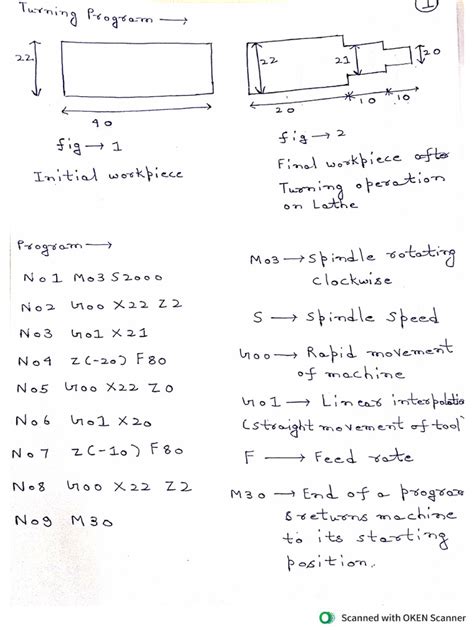 1
Turning Program →
22
40
fig → 1
Initial workpiece
22
21
20
20
10
10
fig → 2
Final workpiece after
Turning operation
on Lathe
Program →
N01 M03 S2000
N02 G00 X22 Z2
N03 G01 X21
N04 Z(-20) F80
N05 G00 X22 Z0
N06 G01 X20
N07 Z(-10) F80
N08 G00 X22 Z2
N09 M30
M03 → Spindle rotating
clockwise
S → Spindle Speed
G00 → Rapid movement
of machine
G01 → Linear interpolatio
(straight movement of tool
F → Feed rate
M30 → End of a program
& returns machine
to its starting
position.
Scanned with OKEN Scanner